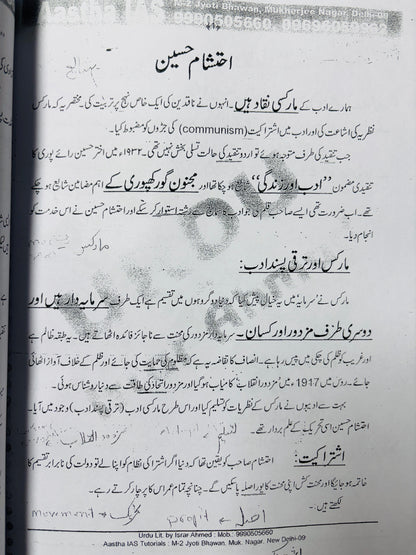 Aastha IAS M-2 Jyoti Bhawan, Mukherjee Nagar, Delhi-09
9990505660, 09696059
احتشام حسین
ہمارے ادب کے مارکسی نقاد ہیں۔ انہوں نے ناقدین کی ایک خاص نہج پر تربیت کی۔ مختصر یہ کہ مارکسی
نظریے کی اشاعت کی اور ادب میں اشتراکیت (communism) کی جڑوں کو مضبوط کیا۔
جب تنقید کی طرف متوجہ ہوئے تو اردو تنقید کی حالت تسلی بخش نہیں تھی۔ ۱۹۳۲ء میں اختر حسین رائے پوری کا
تنقیدی مضمون "ادب اور زندگی" شائع ہو چکا تھا اور مجنوں گورکھپوری کے اہم مضامین شایع ہو چکے
تھے۔ اب ضرورت تھی ایسے صاحب قلم کی جو ادب کا سماج سے رشتہ استوار کرتے اور احتشام حسین نے اس خدمت کو
انجام دیا۔
مارکس
مارکس اور ترقی پسند ادب:
مارکس نے سرمایہ میں یہ خیال پیش کیا کہ دنیا دو گروہوں میں تقسیم ہے ایک طرف سرمایہ دار ہیں اور
دوسری طرف مزدور اور کسان۔ سرمایہ دار مزدور کی محنت سے ناجائز فائدہ اٹھاتے ہیں۔ یہ طبقہ ظالم ہے
اور غریب کو ظلم کی چکی میں پیس رہا ہے۔ انصاف کا تقاضہ یہ ہے کہ مظلوم کی حمایت کی جائے اور ظلم کے خلاف آواز اٹھائی
جائے۔ روس میں 1917ء میں "مزدور انقلاب" کامیاب ہو گیا اور مزدور اتحاد کی طاقت سے دنیا روشناس ہوئی۔
بہت سے ادیبوں نے مارکس کے نظریات کو تسلیم کیا اور اس طرح مارکسی ادب (ترقی پسند ادب) وجود میں آیا۔
احتشام حسین اسی تحریک کے علم بردار تھے۔
اشتراکیت: احتشام صاحب کو یقین تھا کہ دنیا اگر اشتراکی نظام کو اپنا لے تو دولت کی نابرابر تقسیم کا
خاتمہ ہو جائیگا اور محنت کش اپنی محنت کا پورا صلہ پا سکیں گے۔ چنانچہ تمام عمر اس کا پرچار کرتے رہے۔
لکھتے ہیں۔
movement تحریک
Urdu Lit. by Israr Ahmed : Mob.: 9990505660
Aastha IAS Tutorials : M-2 Jyoti Bhawan, Muk. Nagar, New Delhi-09